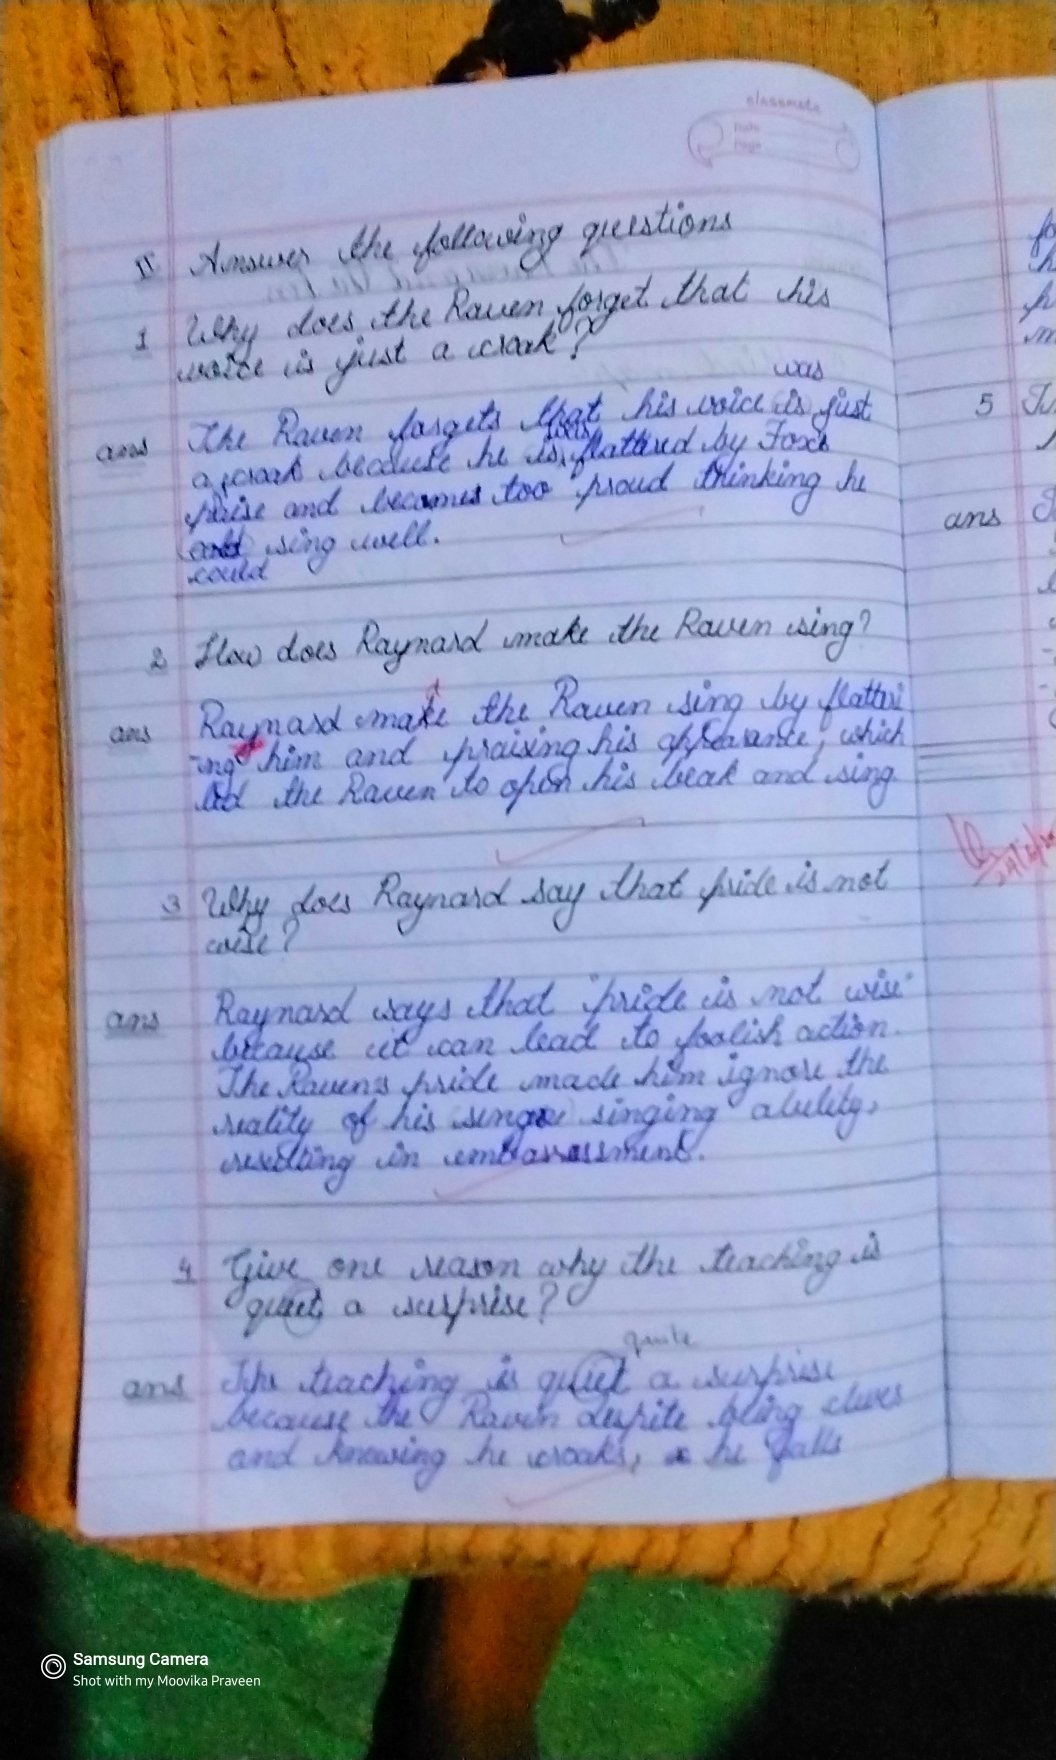 classmate
Date
Page
II Answer the following questions
1 Why does the Raven forget that his
voice is just a croak?
was
ans The Raven forgets that his voice is just
a croak because he is flattered by Foxs
praise and becomes too proud thinking he
sing well.
could
2 How does Raynard make the Raven sing?
ans Raynard make the Raven sing by flatteri
-ng him and praising his appearance, which
led the Raven to open his beak and sing
3 Why does Raynard say that pride is not
wise?
ans Raynard says that "pride is not wise"
because it can lead to foolish action.
The Ravens pride made him ignore the
reality of his singing ability,
resulting in embarrassment.
4 Give one reason why the teaching is
quiet a surprise?
quite
ans The teaching is quiet a surprise
because the Raven despite being clever
and knowing he croaks, he falls
5
ans
Samsung Camera
Shot with my Moovika Praveen